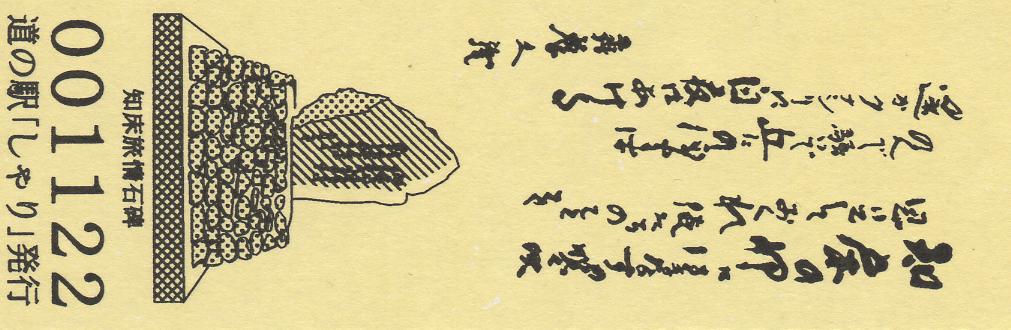 知床の岬にはまなすの咲く頃
思い出しておくれ俺たちのことを
飲んで騒いで丘に登れば
遥かクナシリに白夜は明ける
森繁久彌
知床旅情石碑
001122
道の駅「しゃり」発行